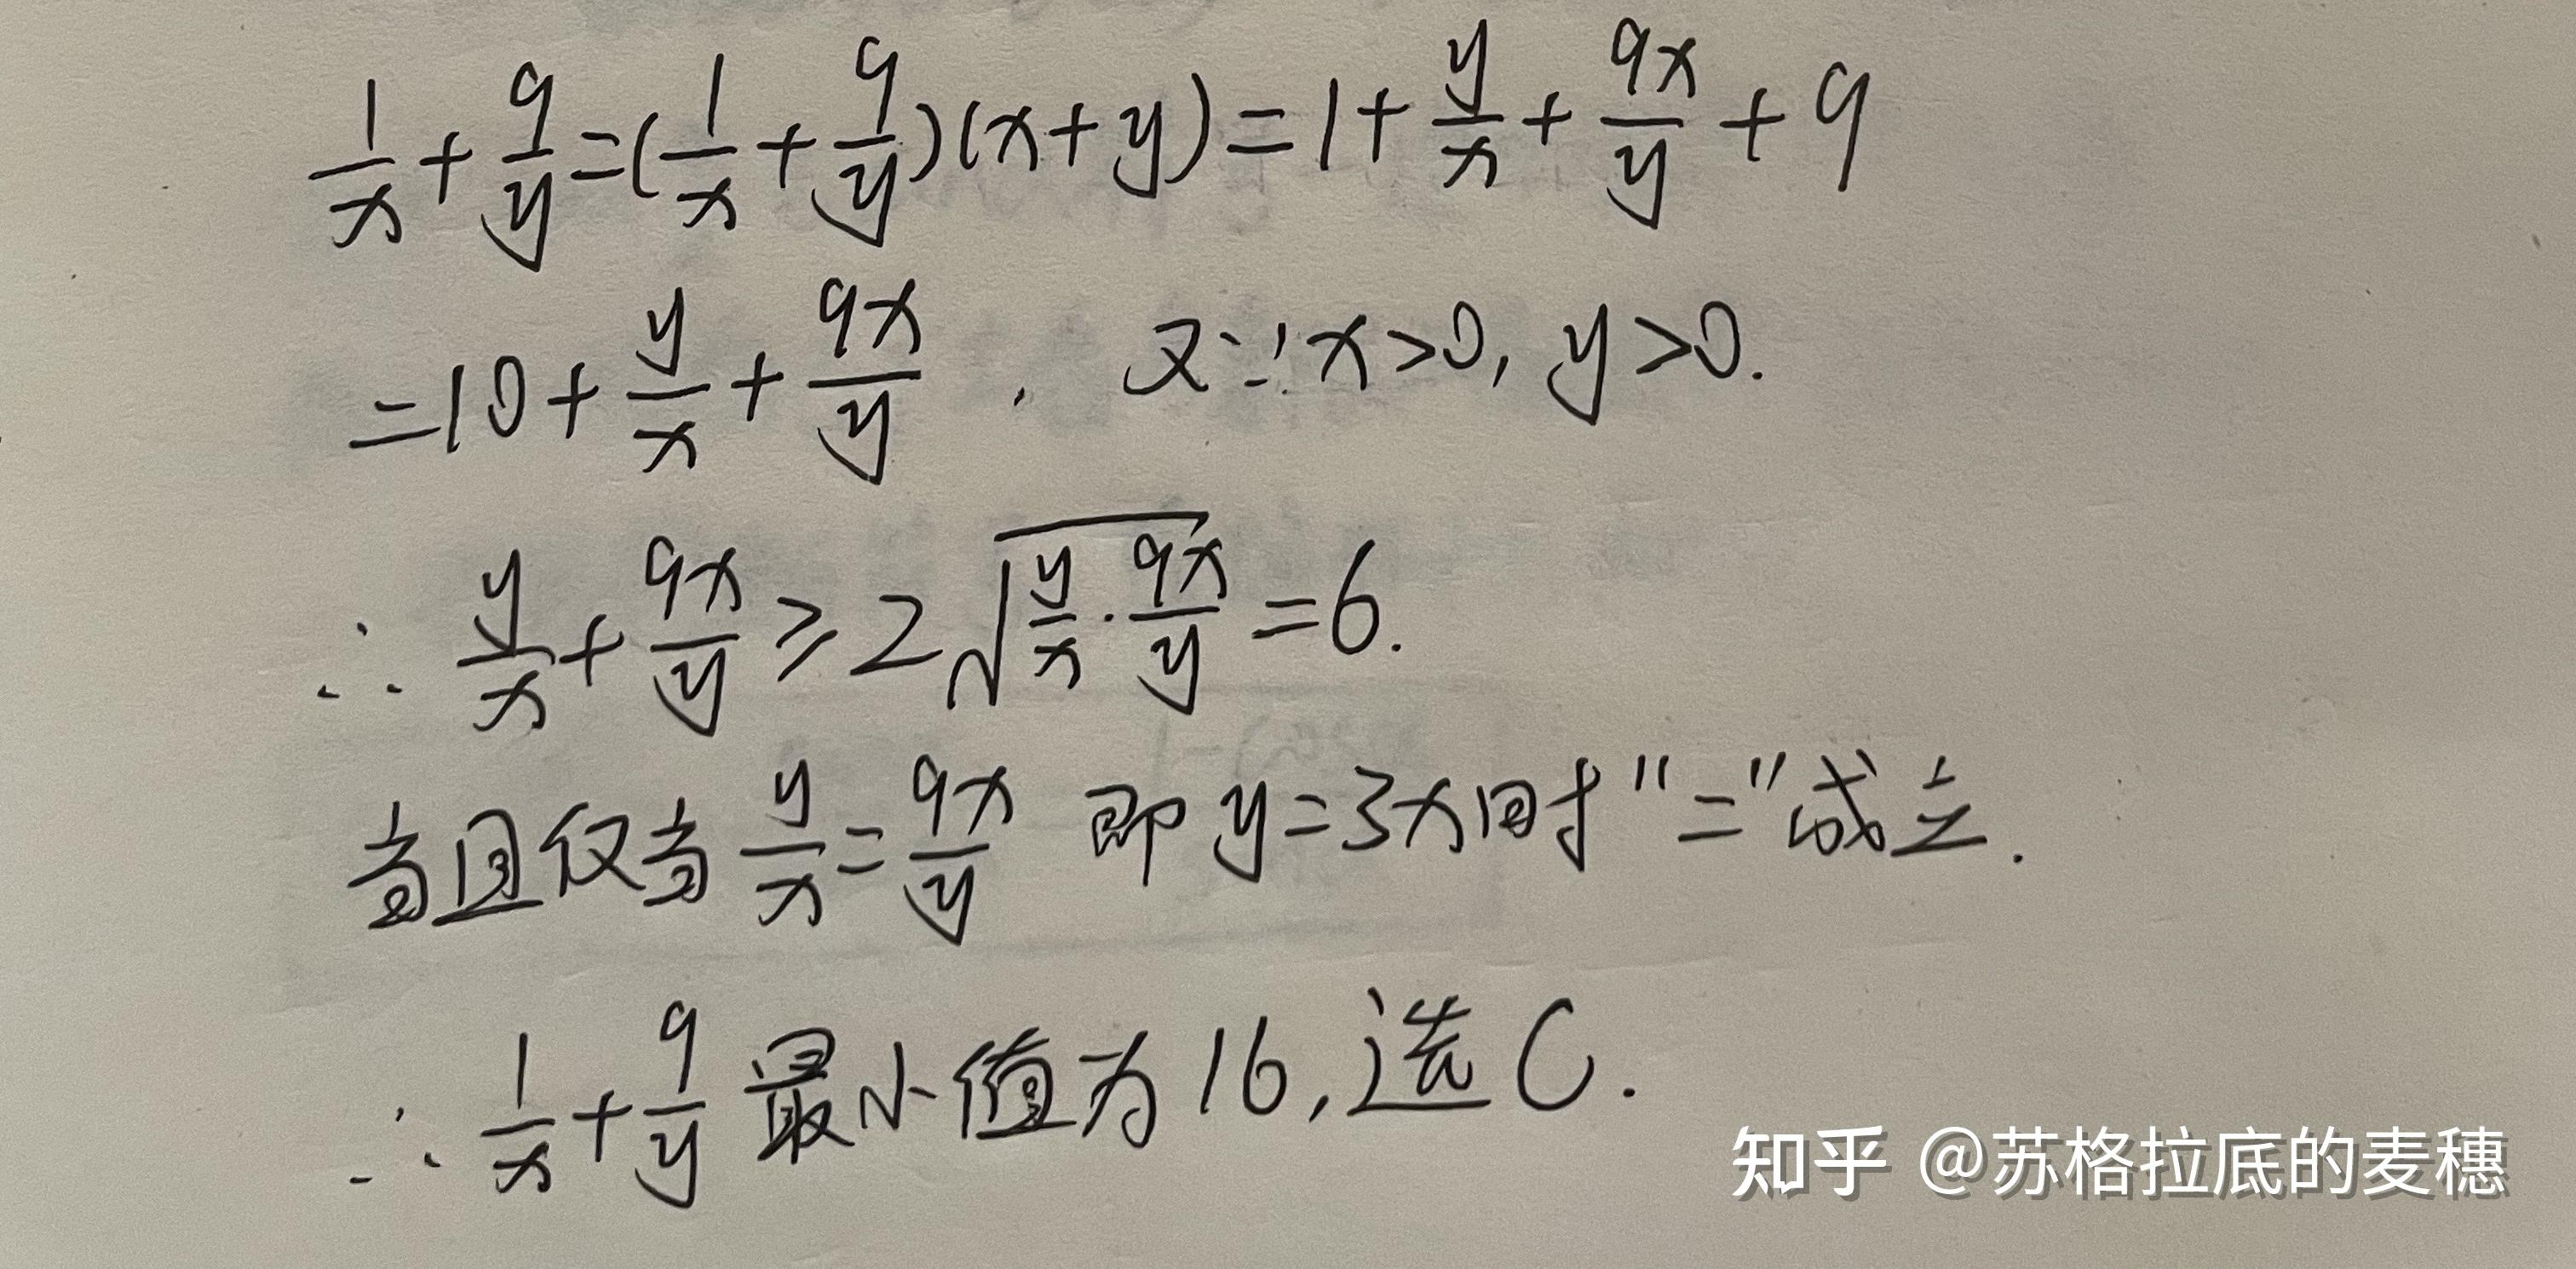 1/x + 9/y = (1/x + 9/y)(x + y) = 1 + y/x + 9x/y + 9
= 10 + y/x + 9x/y . 又∵ x>0, y>0.
∴ y/x + 9x/y ≥ 2√(y/x · 9x/y) = 6.
当且仅当 y/x = 9x/y 即 y=3x时"="成立.
∴ 1/x + 9/y 最小值为16,选C.
知乎 @苏格拉底的麦穗